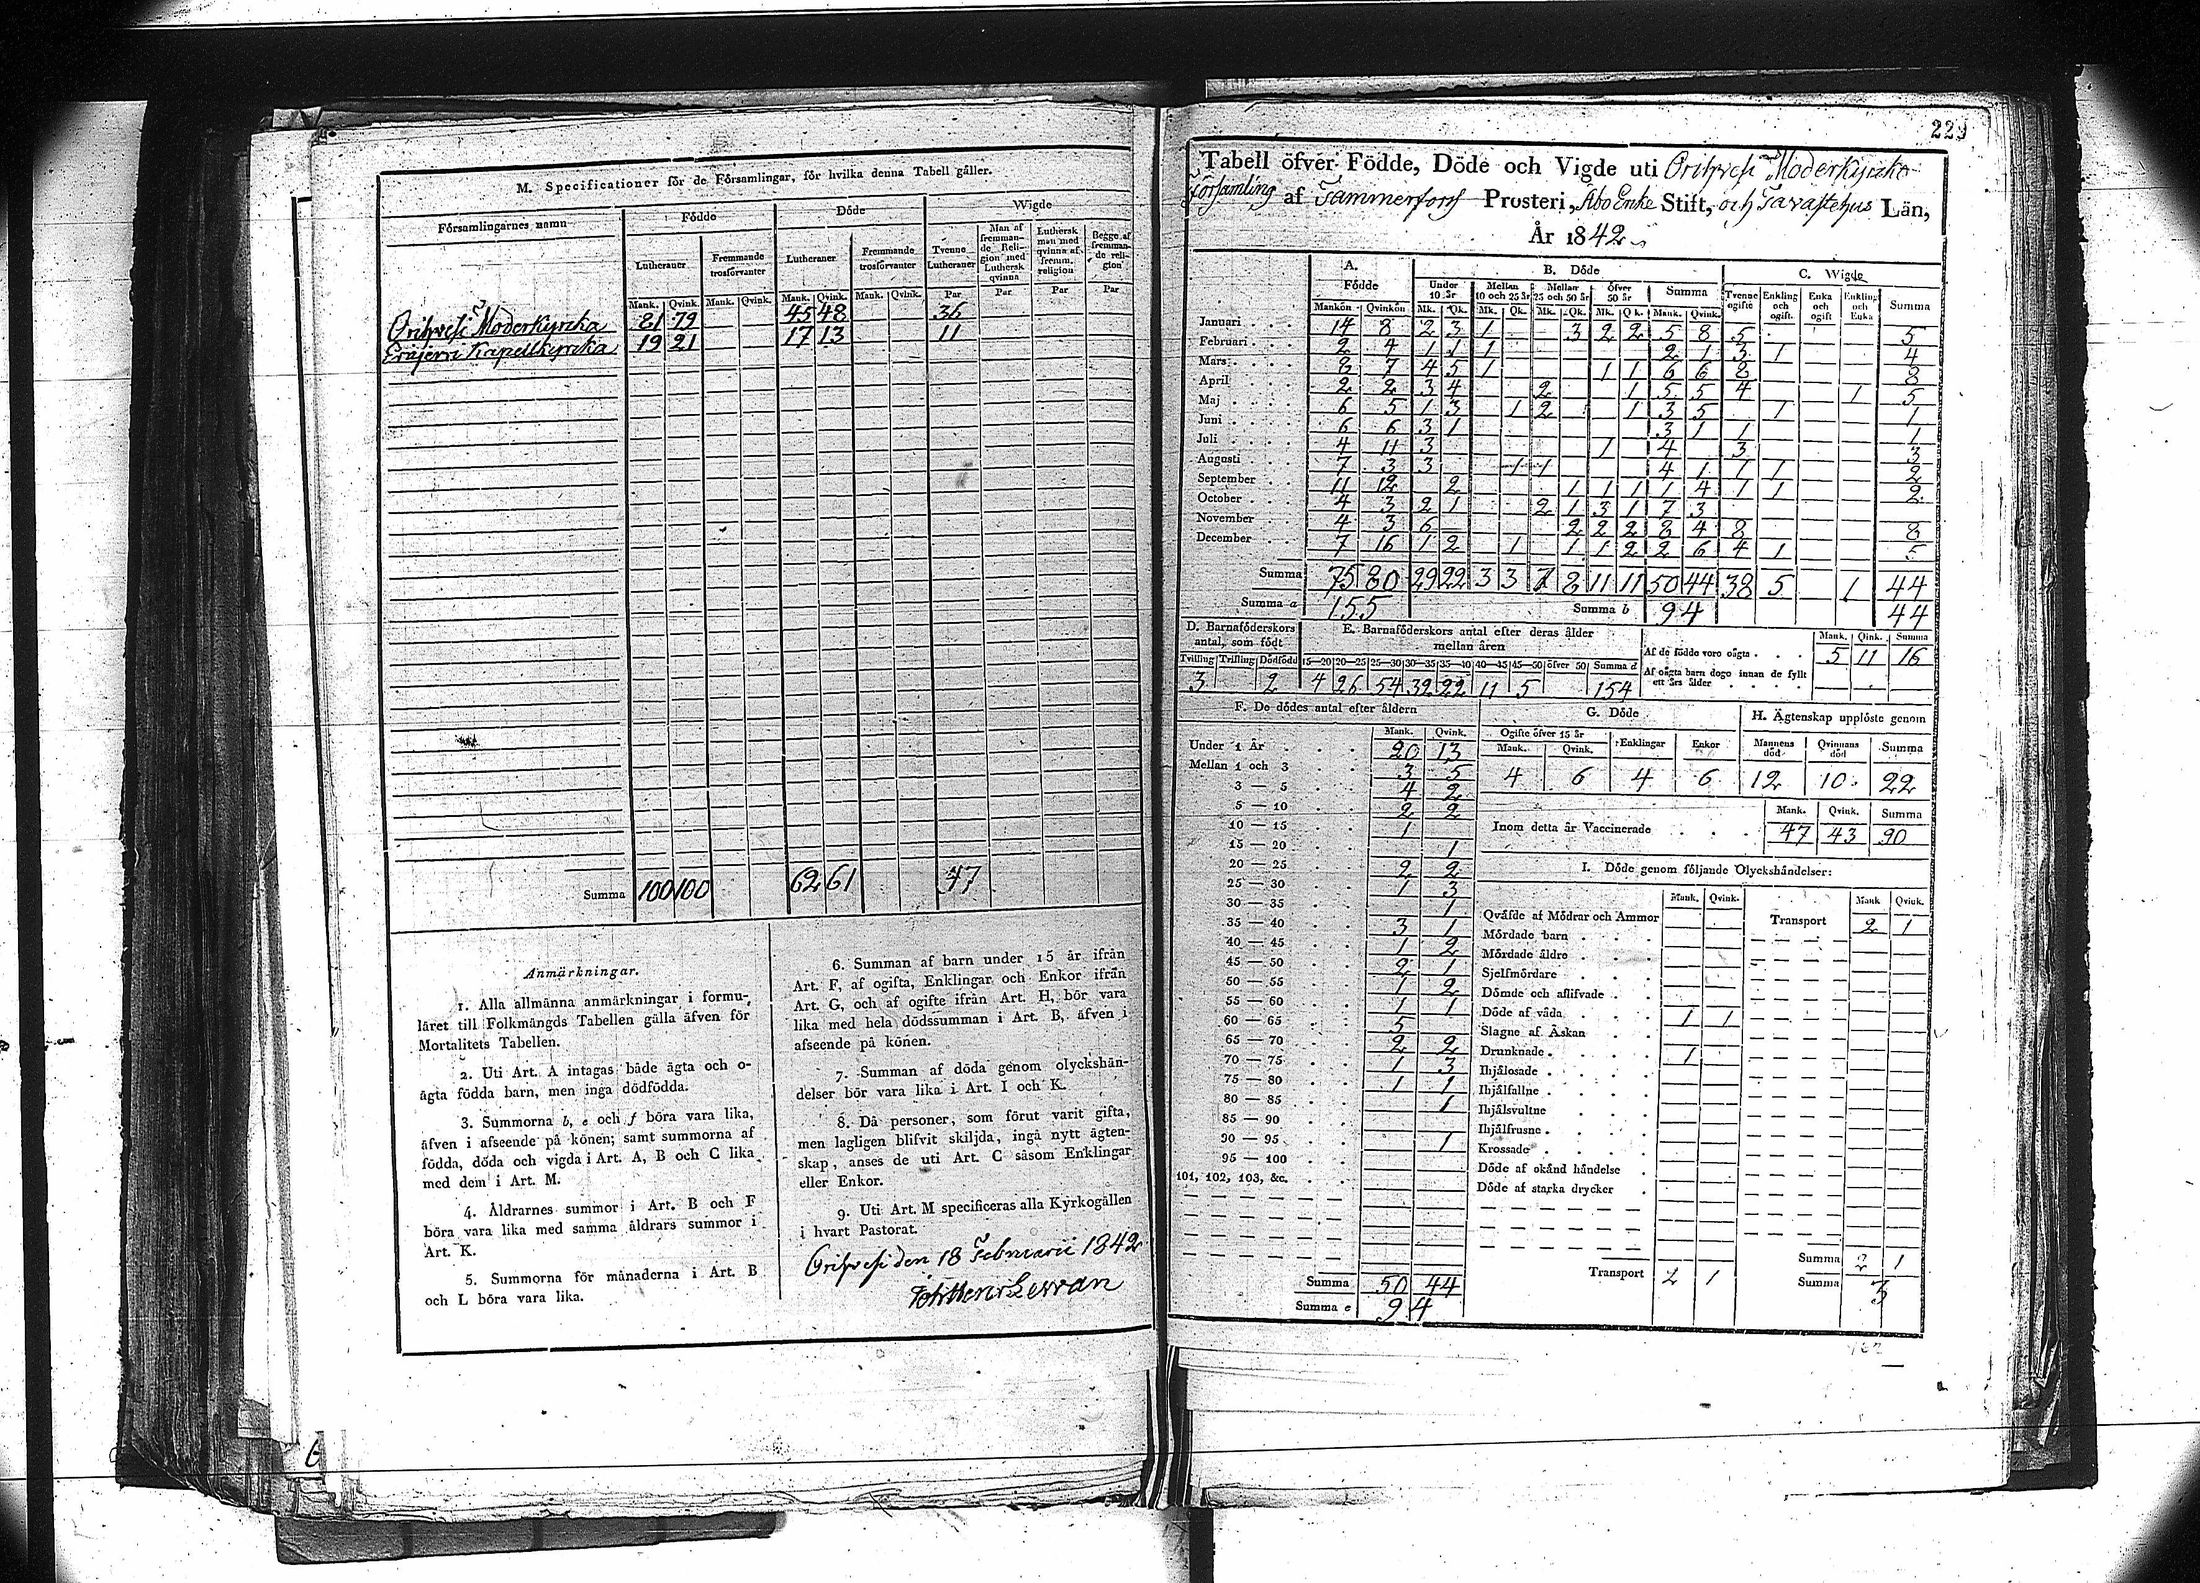 M. Specificationer för de Församlingar, för hvilka denna Tabell gäller.
Församlingarnes namn Födde Döde Wigde
Lutheraner Fremmande trosförvanter Lutheraner Fremmande trosförvanter Tvenne Lutheraner Man af fremmande Religion med Luthersk qvinna Luthersk man med qvinna af fremm. religion Begge af fremmande religion
Mank. Qvink. Mank. Qvink. Mank. Qvink. Mank. Qvink. Par Par Par Par
Orihvesi Moderkyrcka 81 79 45 48 36
Eräjervi Kapellkyrcka 19 21 17 13 11
Summa 100 100 62 61 47
Anmärkningar.
1. Alla allmänna anmärkningar i formu-
läret till Folkmängds Tabellen gälla äfven för
Mortalitets Tabellen.
2. Uti Art. A intagas både ägta och o-
ägta födda barn, men inga dödfödda.
3. Summorna b, e och f böra vara lika,
äfven i afseende på könen; samt summorna af
födda, döda och vigda i Art. A, B och C lika
med dem i Art. M.
4. Åldrarnes summor i Art. B och F
böra vara lika med samma åldrars summor i
Art. K.
5. Summorna för månaderna i Art. B
och L böra vara lika.
6. Summan af barn under 15 år ifrån
Art. F, af ogifta, Enklingar och Enkor ifrån
Art. G, och af ogifte ifrån Art. H, bör vara
lika med hela dödssumman i Art. B, äfven i
afseende på könen.
7. Summan af döda genom olyckshän-
delser bör vara lika i Art. I och K.
8. Då personer, som förut varit gifta,
men lagligen blifvit skiljda, ingå nytt ägten-
skap, anses de uti Art. C såsom Enklingar
eller Enkor.
9. Uti Art. M specificeras alla Kyrkogällen
i hvart Pastorat.
Orihvesi den 18 Februarii 1842
229
Tabell öfver Födde, Döde och Vigde uti Orihvesi Moderkyrcko
församling af Tammerfors Prosteri, Åbo Erke Stift, och Tavastehus Län,
År 1842
A. Födde B. Döde C. Wigde
Under 10 år Mellan 10 och 25 år Mellan 25 och 50 år öfver 50 år Summa Tvenne ogifte Enkling och ogift Enka och ogift Enkling och Enka Summa
Mankön Qvinkön Mk. Qk. Mk. Qk. Mk. Qk. Mk. Qk. Mank. Qvink.
Januari 14 8 2 3 1 3 2 2 5 8 5 5
Februari 2 4 1 1 1 2 1 3 1 4
Mars 8 7 4 5 1 1 1 6 6 8 8
April 2 2 3 4 2 1 5 5 4 1 5
Maj 6 5 1 3 1 2 1 3 5 1 1
Juni 6 6 3 1 3 1 1 1
Juli 4 11 3 1 4 3 3
Augusti 7 3 3 1 1 4 1 1 1 2
September 11 12 2 1 1 1 1 4 1 1 2
October 4 3 2 1 2 1 3 1 7 3
November 4 3 6 2 2 2 8 4 8 8
December 7 16 1 2 1 1 1 2 2 6 4 1 5
Summa 75 80 29 22 3 3 7 8 11 11 50 44 38 5 1 44
Summa a 155 Summa b 94 44
D. Barnaföderskors antal, som födt
Tvilling Trilling Dödfödd
3 2
E. Barnaföderskors antal efter deras ålder mellan åren
15—20 20—25 25—30 30—35 35—40 40—45 45—50 öfver 50 Summa d
4 26 54 32 22 11 5 154
Mank. Qink. Summa
Af de födde voro oägta 5 11 16
Af oägta barn dogo innan de fyllt ett års ålder
F. De dödes antal efter åldern
Mank. Qvink.
Under 1 År 20 13
Mellan 1 och 3 3 5
3 — 5 4 2
5 — 10 2 2
10 — 15 1
15 — 20 1
20 — 25 2 2
25 — 30 1 3
30 — 35 1
35 — 40 3 1
40 — 45 1 2
45 — 50 2 1
50 — 55 1 2
55 — 60 1 1
60 — 65 5
65 — 70 2 2
70 — 75 1 3
75 — 80 1 1
80 — 85 1
85 — 90
90 — 95 1
95 — 100
101, 102, 103, &c.
Summa 50 44
Summa e 94
G. Döde
Ogifte öfver 15 år Enklingar Enkor
Mank. Qvink.
4 6 4 6
H. Ägtenskap upplöste genom
Mannens död Qvinnans död Summa
12 10 22
Mank. Qvink. Summa
Inom detta år Vaccinerade 47 43 90
I. Döde genom följande Olyckshändelser:
Mank. Qvink. Mank Qvink.
Qväfde af Mödrar och Ammor Transport 2 1
Mördade barn
Mördade äldre
Sjelfmördare
Dömde och aflifvade
Döde af våda 1 1
Slagne af Åskan
Drunknade 1
Ihjälosade
Ihjälfallne
Ihjälsvultne
Ihjälfrusne
Krossade
Döde af okänd händelse
Döde af starka drycker
Transport 2 1
Summa 2 1
Summa 3